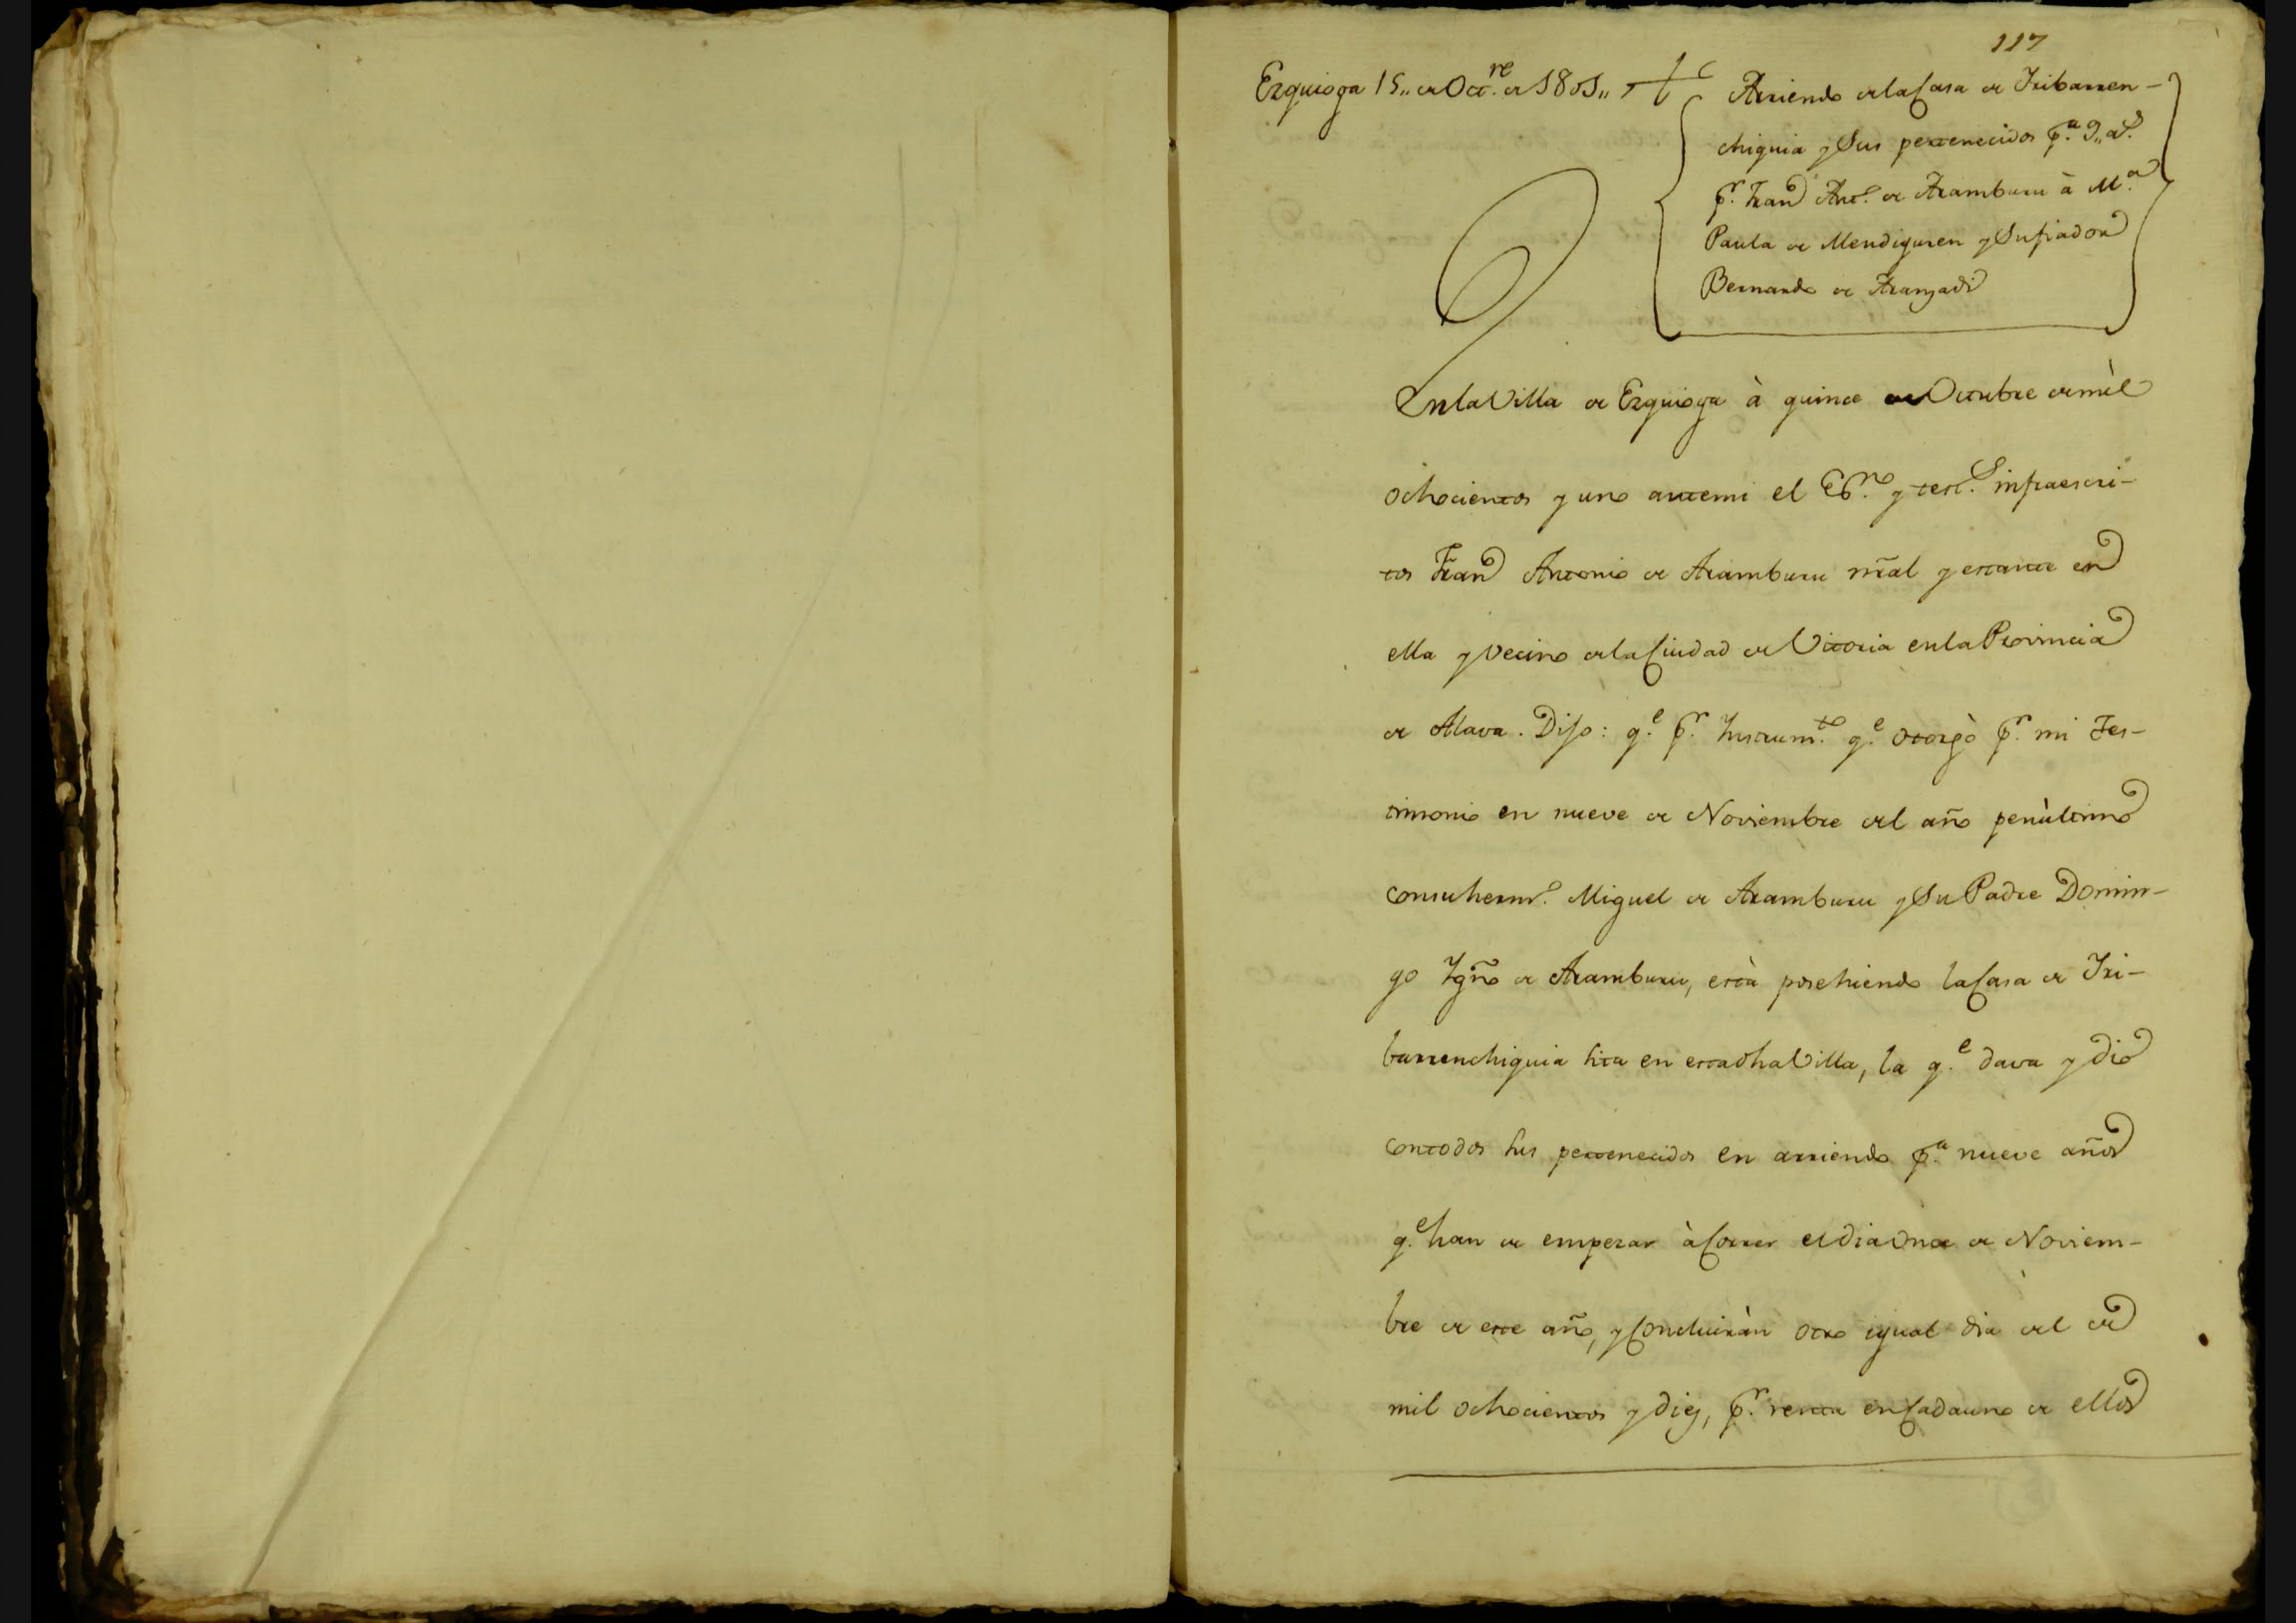 117
Ezquioga 15,, de Oct.re de 1801,,
Arriendo de la Casa de Iribarren-
chiquia y Sus pertenecidos p.a 9,, a.s
p.r Fran Ant.o de Aramburu à M.a
Paula de Mendiguren y Su fiador
Bernardo de Aranzadi
En la Villa de Ezquioga à quince de Octubre de mìl
ochocientos y uno ante mi el Es.no y test.s infraescri-
tos Fran Antonio de Aramburu nral y estante en
ella y Vecino de la Ciudad de Vitoria en la Provincia
de Alava. Dijo: q.e p.r Instrum.to q.e otorgò p.r mi Tes-
timonio en nueve de Noviembre del año penùltimo
con su herm.o Miguel de Aramburu y Su Padre Domin-
go Ygño de Aramburu, està posehiendo la Casa de Iri-
barrenchiquia sita en esta dha Villa, la q.e dava y dio
con todos sus pertenecidos en arriendo p.a nueve años
q.e han de empezar à Correr el dia Once de Noviem-
bre de este año, y Concluiràn otro igual dia del de
mil ochocientos y diez, p.r renta en Cada uno de ellos